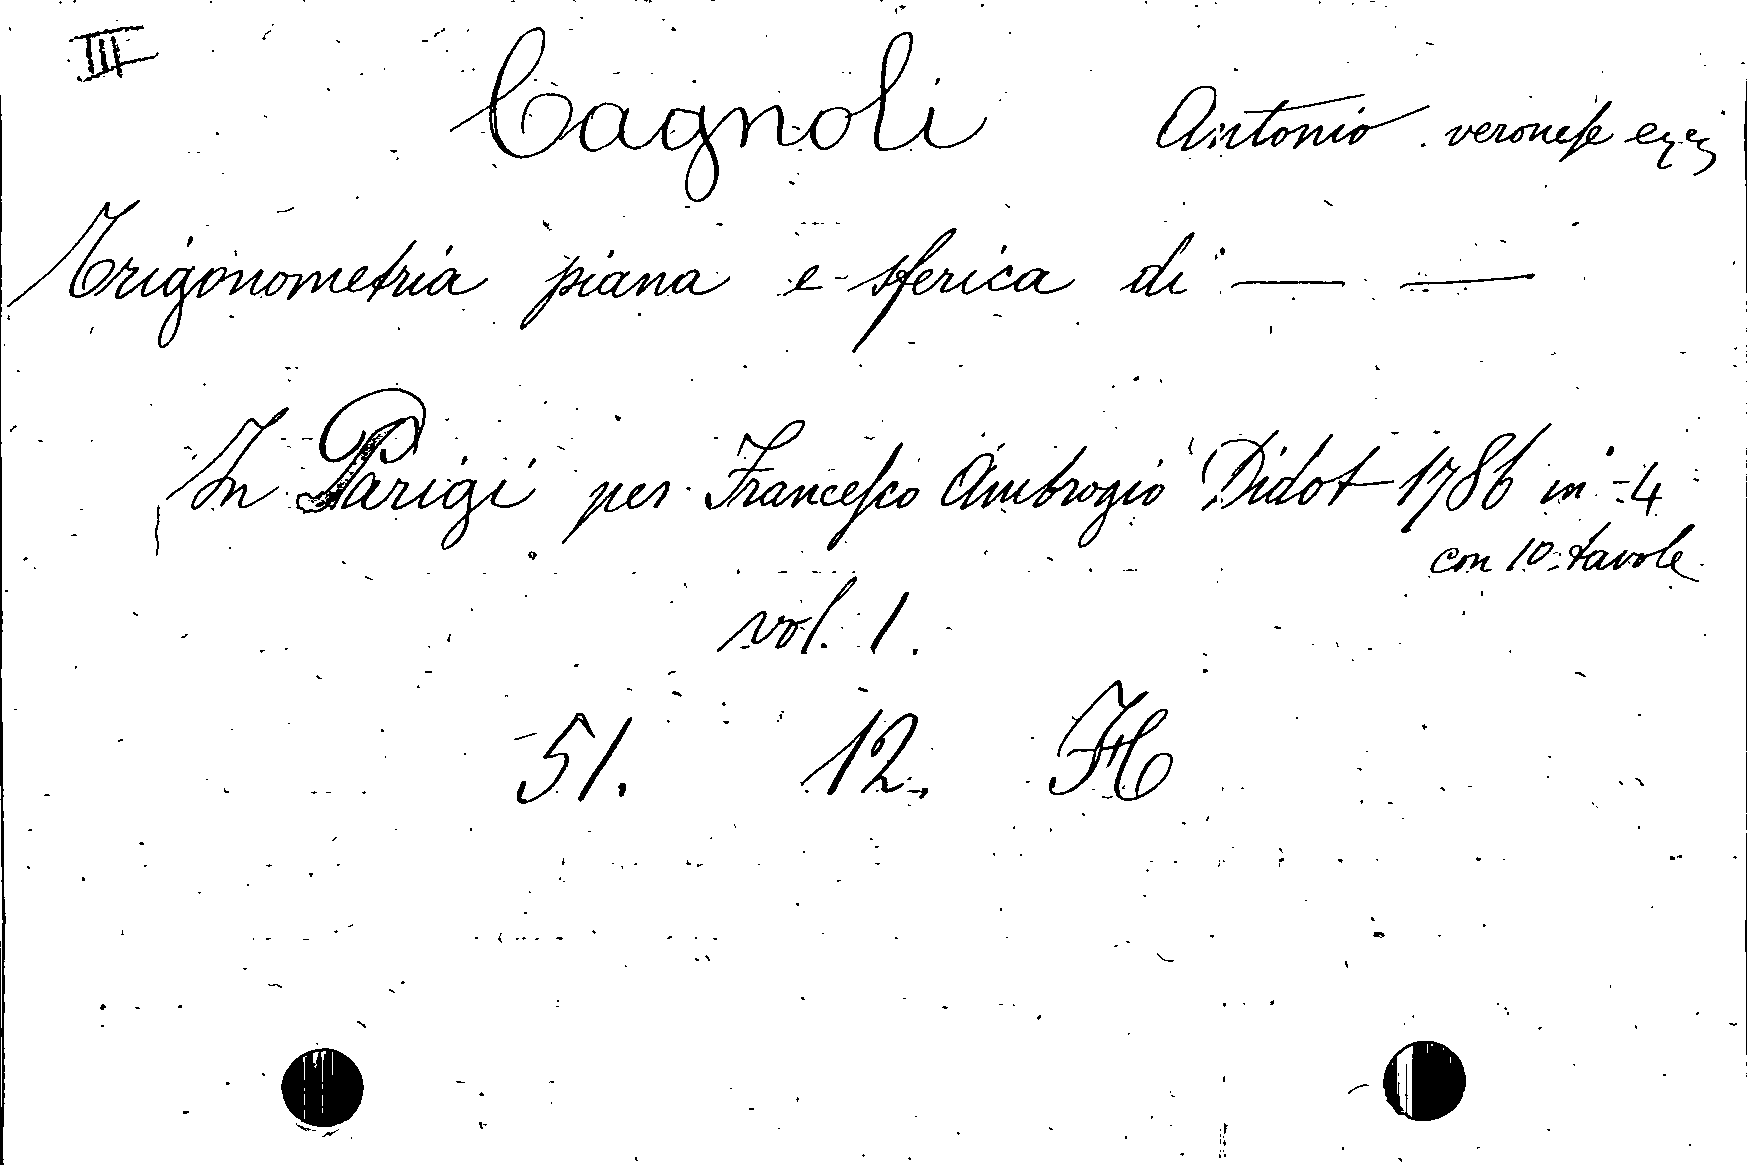 III
Cagnoli Antonio veronese ezej
Trigonometria piana e sferica di — —
In Parigi per Francesco Ambrogio Didot 1786 in-4
con 10 tavole
vol. 1.
51. 12. H